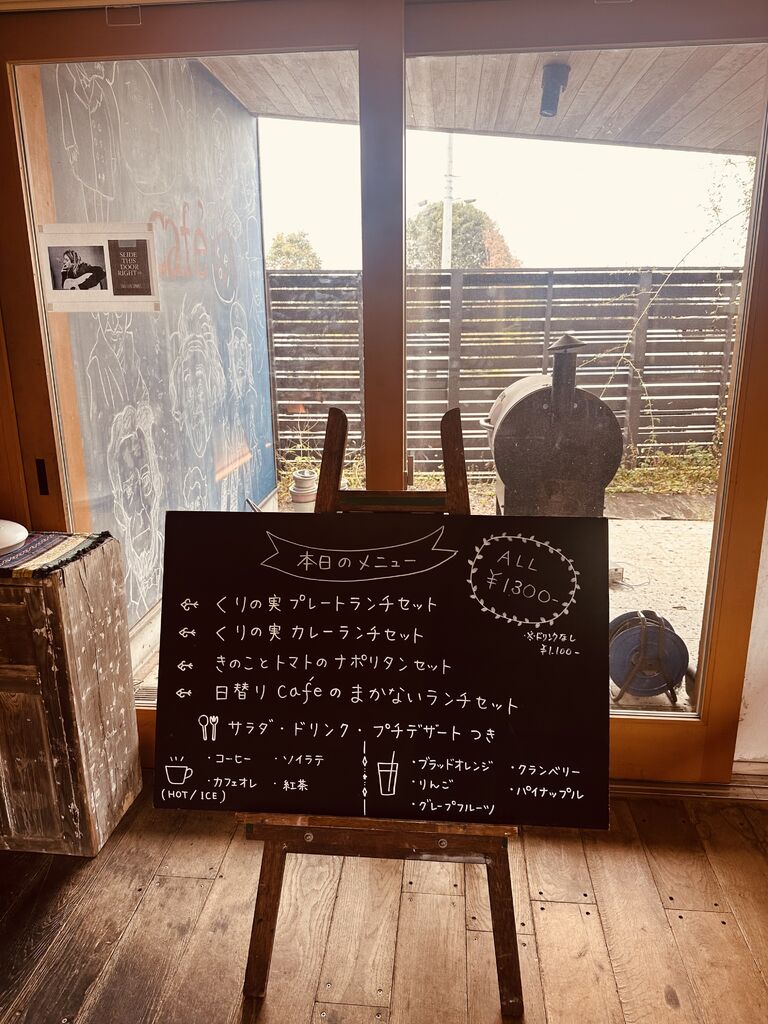 café
SLIDE
THIS
DOOR
RIGHT
本日のメニュー
ALL
¥1,300-
※ドリンクなし
¥1,100-
くりの実 プレートランチセット
くりの実 カレーランチセット
きのことトマトのナポリタンセット
日替り Caféの まかないランチセット
サラダ・ドリンク・プチデザート つき
・コーヒー ・ソイラテ
・カフェオレ ・紅茶
(HOT/ICE)
・ブラッドオレンジ ・クランベリー
・りんご ・パイナップル
・グレープフルーツ